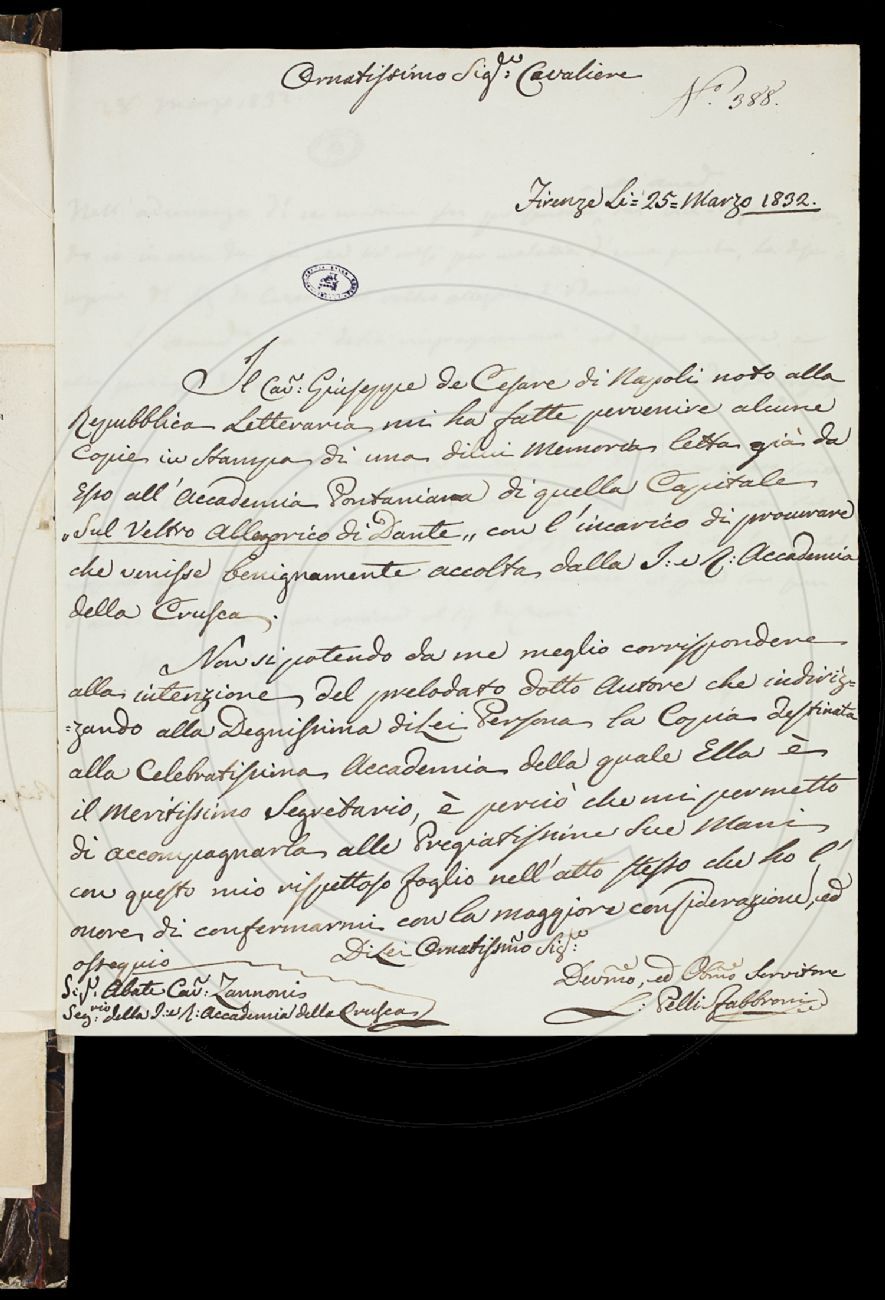 Ornatissimo Sig.re Cavaliere
N.o 388.
Firenze Li= 25= Marzo 1832.
Il Cav.: Giuseppe de Cesare di Napoli noto alla
Repubblica Letteraria mi ha fatte pervenire alcune
Copie in Stampa di una di lui Memoria letta già da
Esso all'Accademia Pontaniana di quella Capitale
„Sul Veltro Allegorico di Dante„ con l'incarico di procurare
che venisse benignamente accolta dalla I: e R: Accademia
della Crusca.
Non si potendo da me meglio corrispondere
alla intenzione del prelodato dotto Autore che indiriz=
=zando alla Degnissima di Lei Persona la Copia destinata
alla Celebratissima Accademia della quale Ella è
il Meritissimo Segretario, è perciò che mi permetto
di accompagnarla alle Pregiatissime Sue Mani
con questo mio rispettoso foglio nell'atto stesso che ho l'
onore di confermarmi con la maggiore considerazione, ed
ossequio
Di Lei Ornatissmo Sig.re
Sig.r Abate Cav.: Zannoni
Seg.rio della I: e R: Accademia della Crusca
Devmo, ed Obmo Servitore
L: Pelli Fabbroni